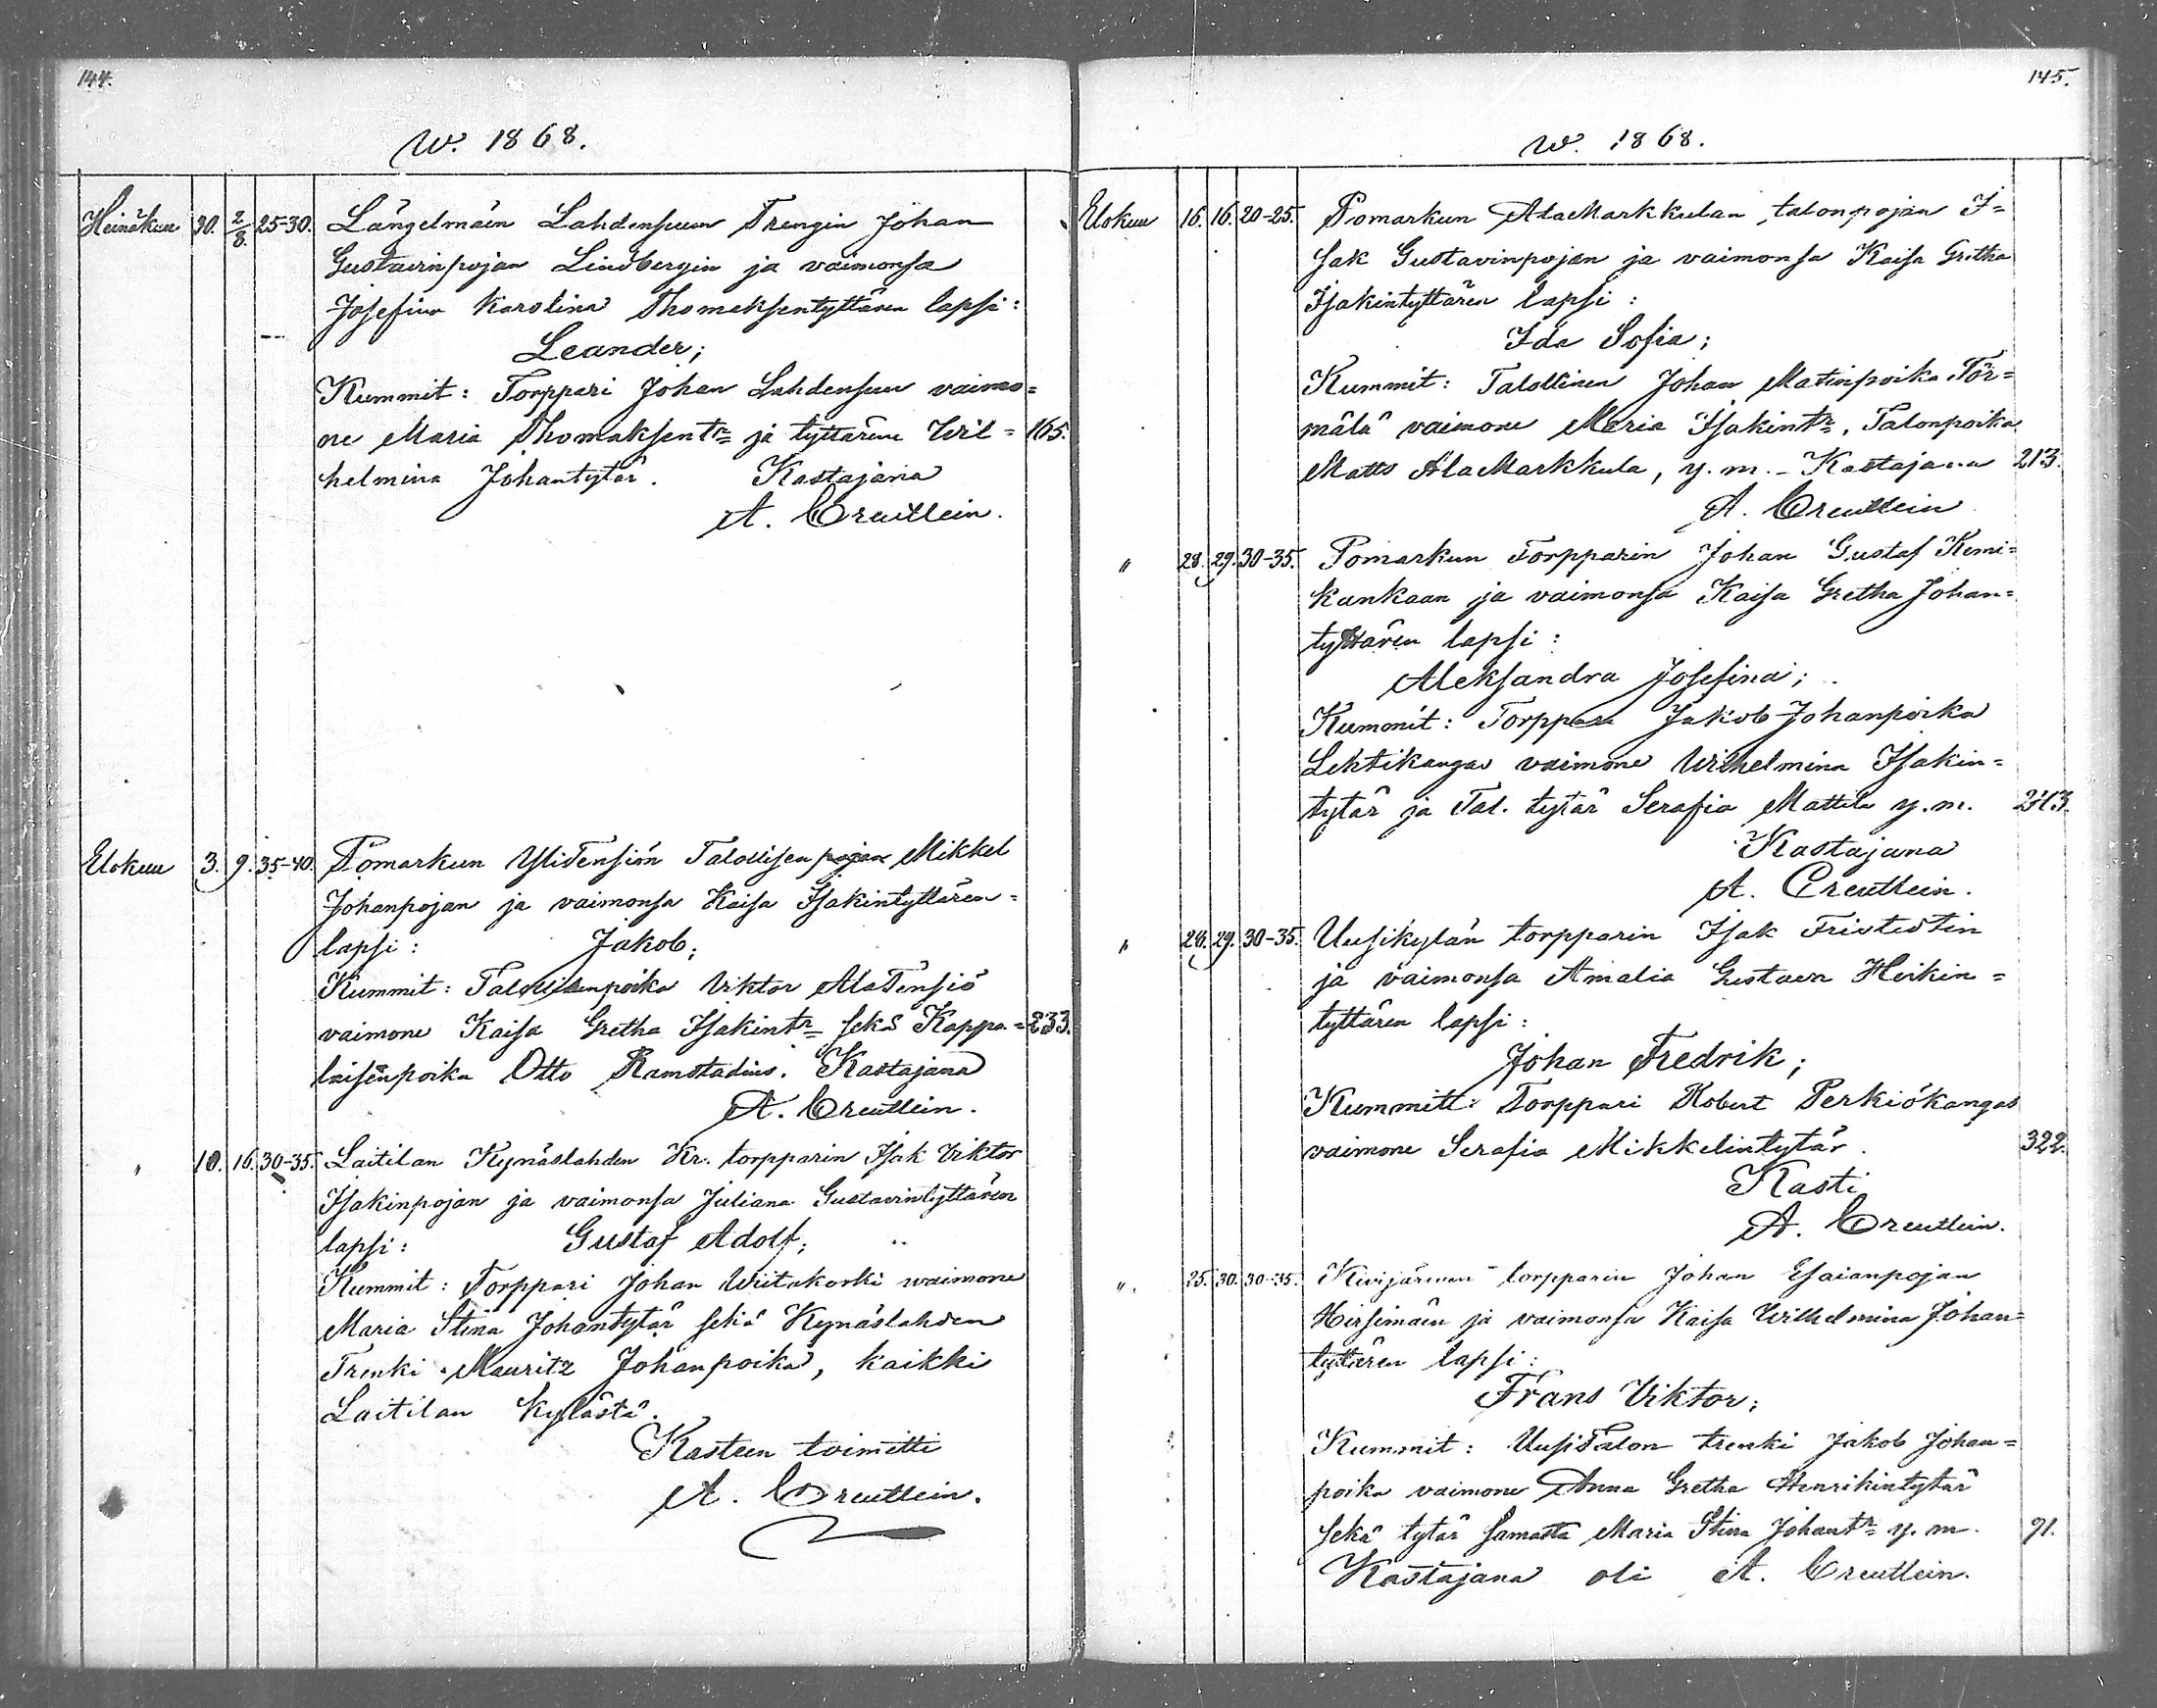 144.
W. 1868.
Heinäkuu 30. 2/8. 25-30. Längelmäen Lahdensuun Trengin Johan
Gustavinpojan Lindbergin ja vaimonsa
Josefina Karolina Thomaksentyttären lapsi:
Leander;
Kummit: Torppari Johan Lahdensuu vaimo=
ne Maria Thomaksentr ja tyttärene Wil= 165.
helmina Johantytär. Kastajana
A. Creutlein.
Elokuu 3. 9. 35-40. Pomarkun YliTensiön Talollisen pojan Mikkel
Johanpojan ja vaimonsa Kaisa Isakintyttären=
lapsi: Jakob;
Kummit: Talollisenpoika Viktor AlaTensiö
vaimone Kaisa Gretha Isakintr sekä Kappa= 233.
laisenpoika Otto Ramstadius. Kastajana
A. Creutlein.
" 10. 16. 30-35. Laitilan Kynäslahden Kr. torpparin Isak Viktor
Isakinpojan ja vaimonsa Juliana Gustavintyttären
lapsi: Gustaf Adolf;
Kummit: Torppari Johan Wiitakoski waimone
Maria Stina Johantytär sekä Kynäslahden
Trenki Mauritz Johanpoika, kaikki
Laitilan kylästä.
Kasteen toimitti
A. Creutlein.
145.
W. 1868.
Elokuu 16. 16. 20-25. Pomarkun AlaMarkkulan talonpojan I=
sak Gustavinpojan ja vaimonsa Kaisa Gretha
Isakintyttären lapsi:
Ida Sofia;
Kummit: Talollinen Johan Matinpoika Tör=
mälä vaimone Maria Isakintr, Talonpoika
Matts AlaMarkkula, y. m. - Kastajana 213.
A. Creutlein
" 28. 29. 30-35. Pomarkun Torpparin Johan Gustaf Kemi=
kankaan ja vaimonsa Kaisa Gretha Johan=
tyttären lapsi:
Aleksandra Josefina;
Kummit: Torppari Jakob Johanpoika
Lehtikangas vaimone Wilhelmina Isakin=
tytär ja Tal. tytär Serafia Mattila y. m. 243.
Kastajana
A. Creutlein.
" 26. 29. 30-35. Uusikylän torpparin Isak Fristedtin
ja vaimonsa Amalia Gustava Heikin=
tyttären lapsi:
Johan Fredrik;
Kummitt: Torppari Robert Perkiökangas
vaimone Serafia Mikkelintytär. 322.
Kasti
A. Creutlein.
" 25. 30. 30-35. Kivijärven torpparin Johan Esaianpojan
Hirsimäen ja vaimonsa Kaisa Wilhelmina Johan=
tyttären lapsi:
Frans Viktor;
Kummit: UusiTalon trenki Jakob Johan=
poika vaimone Anna Gretha Henrikintytär
sekä tytär samasta Maria Stina Johantr y. m. 91.
Kastajana oli A. Creutlein.